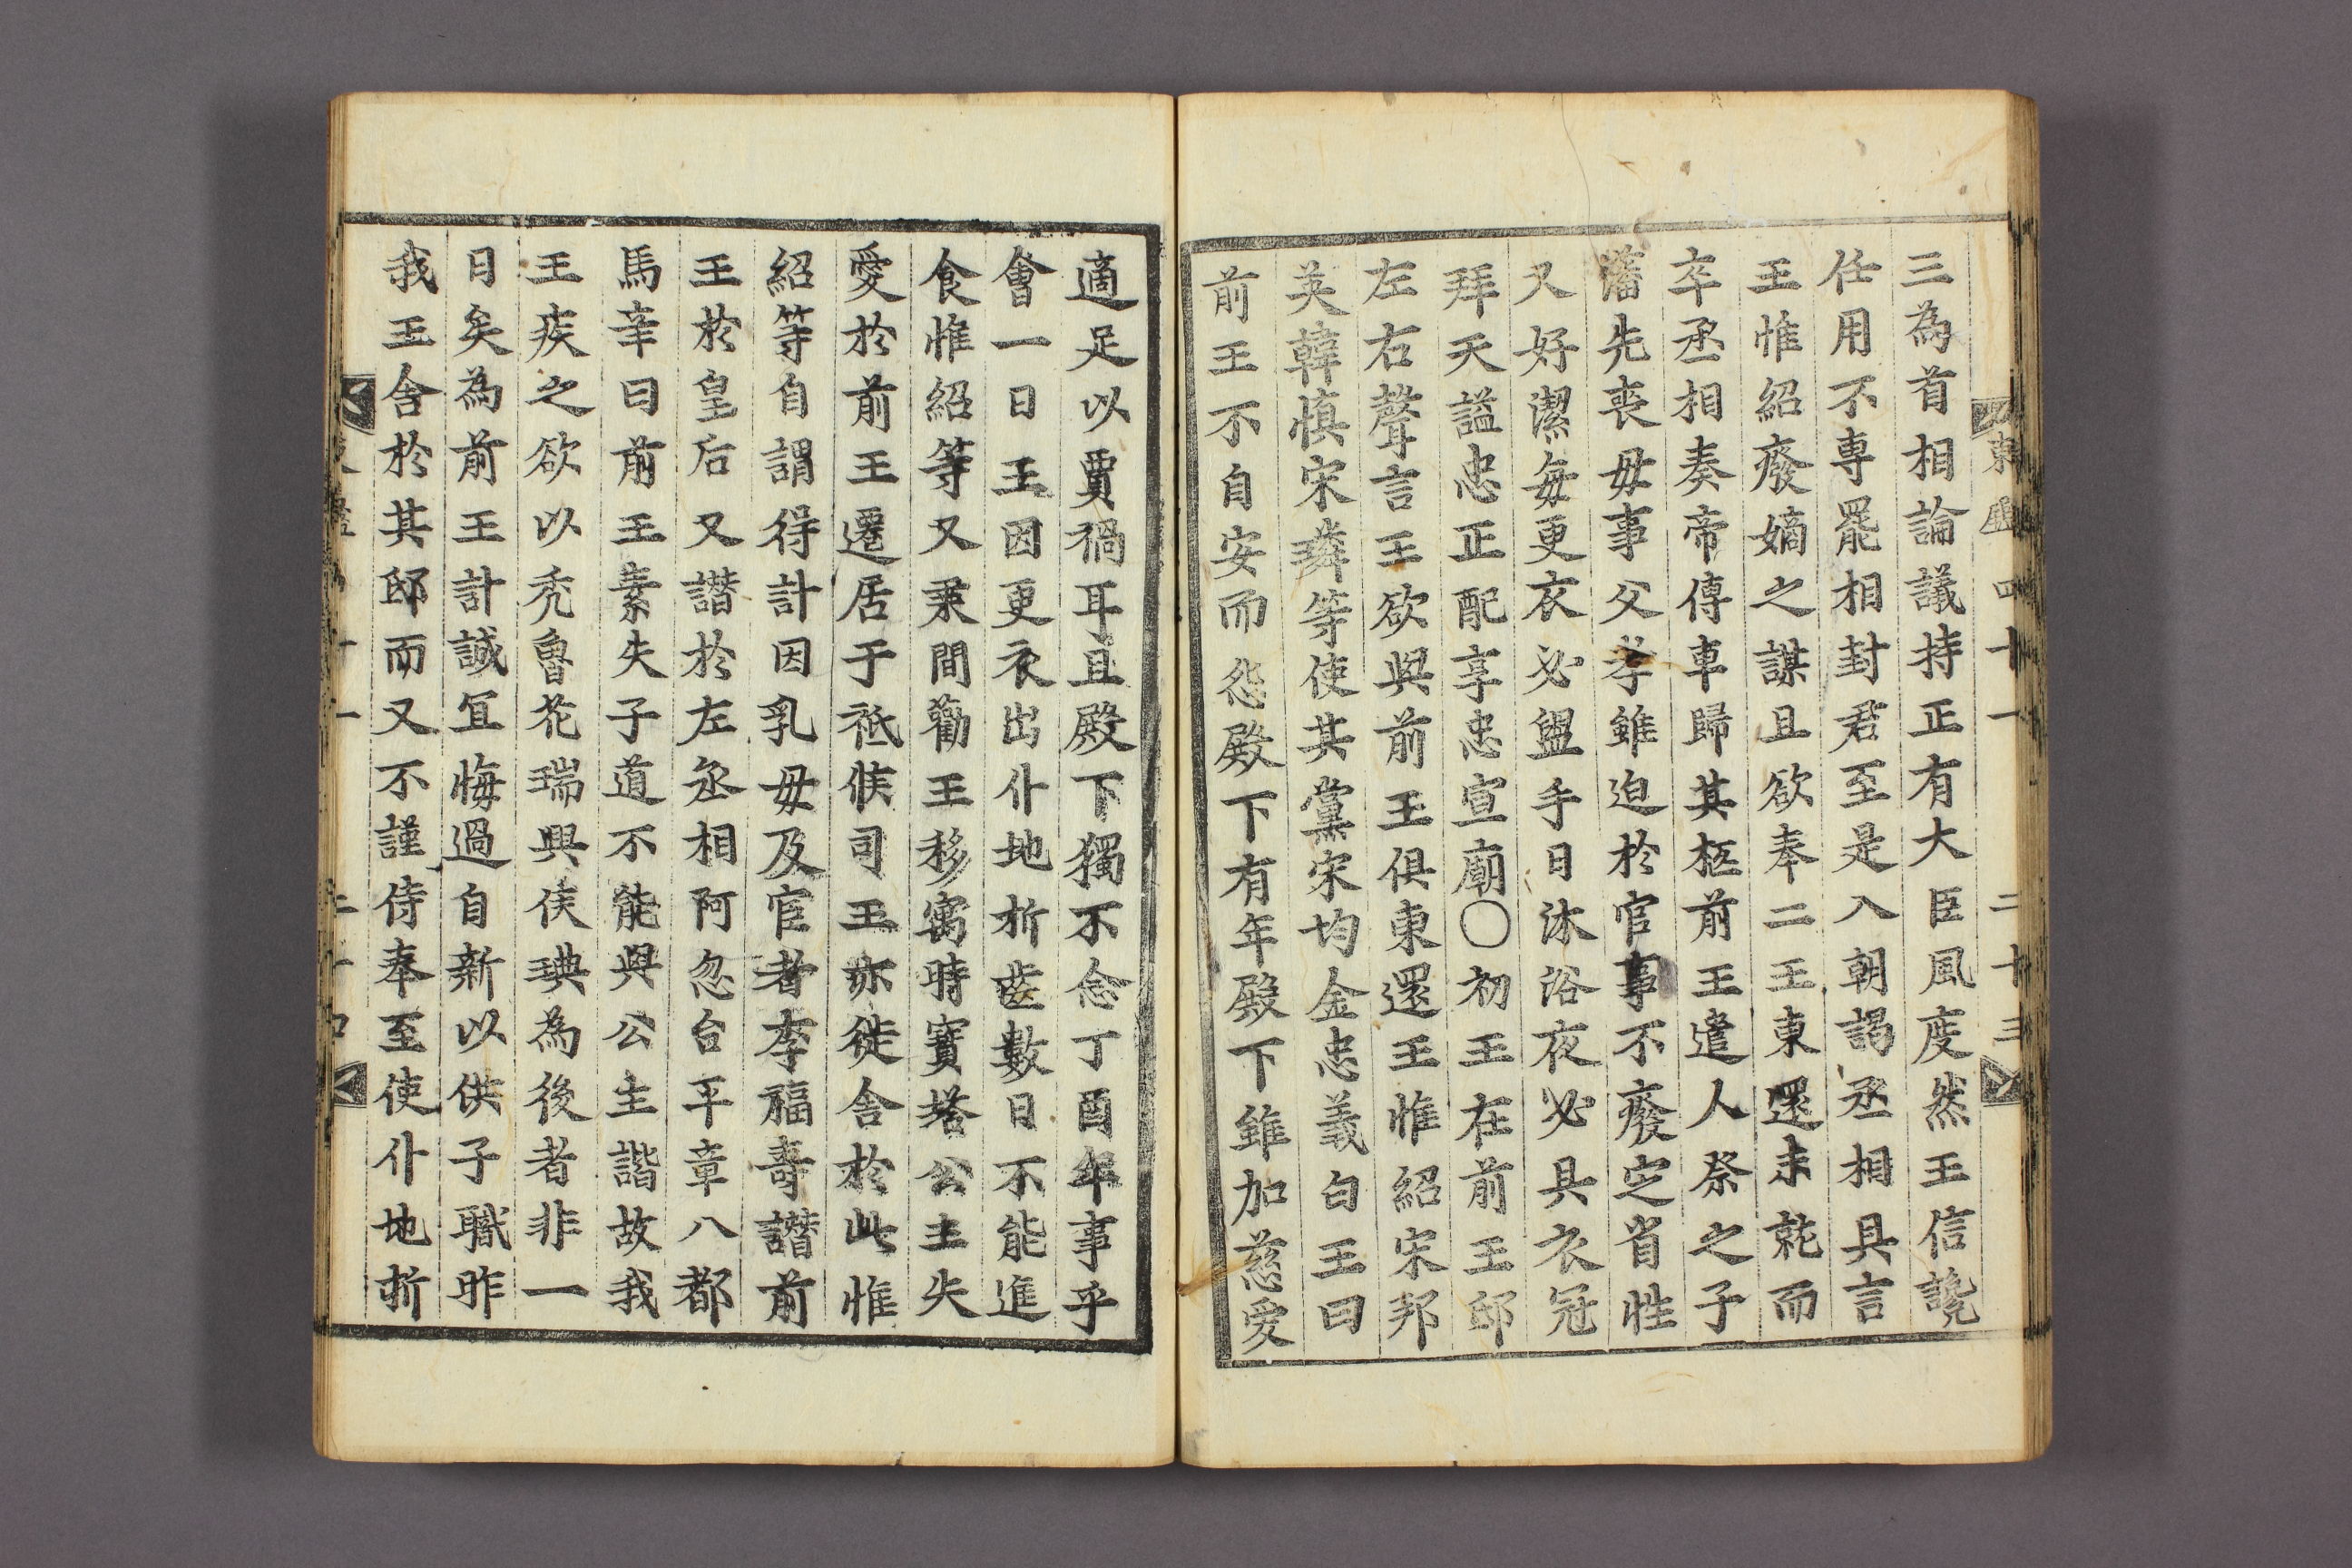 東鑑四十一 二十三
三為首相論議持正有大臣風度然王信讒
任用不專罷相封君至是入朝謁丞相具言
王惟紹廢嫡之謀且欲奉二王東還未就而
卒丞相奏帝傳車歸其柩前王遣人祭之子
藩先喪母事父孝雖迫於官事不廢定省性
又好潔每更衣必盥手日沐浴夜必具衣冠
拜天謚忠正配享忠宣廟〇初王在前王邸
左右聲言王欲與前王俱東還王惟紹宋邦
英韓愼宋璘等使其黨宋均金忠義白王曰
前王不自安而怨殿下有年殿下雖加慈愛
適足以賈禍耳且殿下獨不念丁酉年事乎
會一日王因更衣出仆地折齒數日不能進
食惟紹等又乘間勸王移寓時寶塔公主失
愛於前王遷居于祗候司王亦徙舍於此惟
紹等自謂得計因乳母及宦者李福壽譖前
王於皇后又譖於左丞相阿忽台平章八都
馬辛曰前王素失子道不能與公主諧故我
王疾之欲以禿魯花瑞興侯琠為後者非一
日矣為前王計誠冝悔過自新以供子職昨
我王舍於其邸而又不謹侍奉至使仆地折
十一 二十四